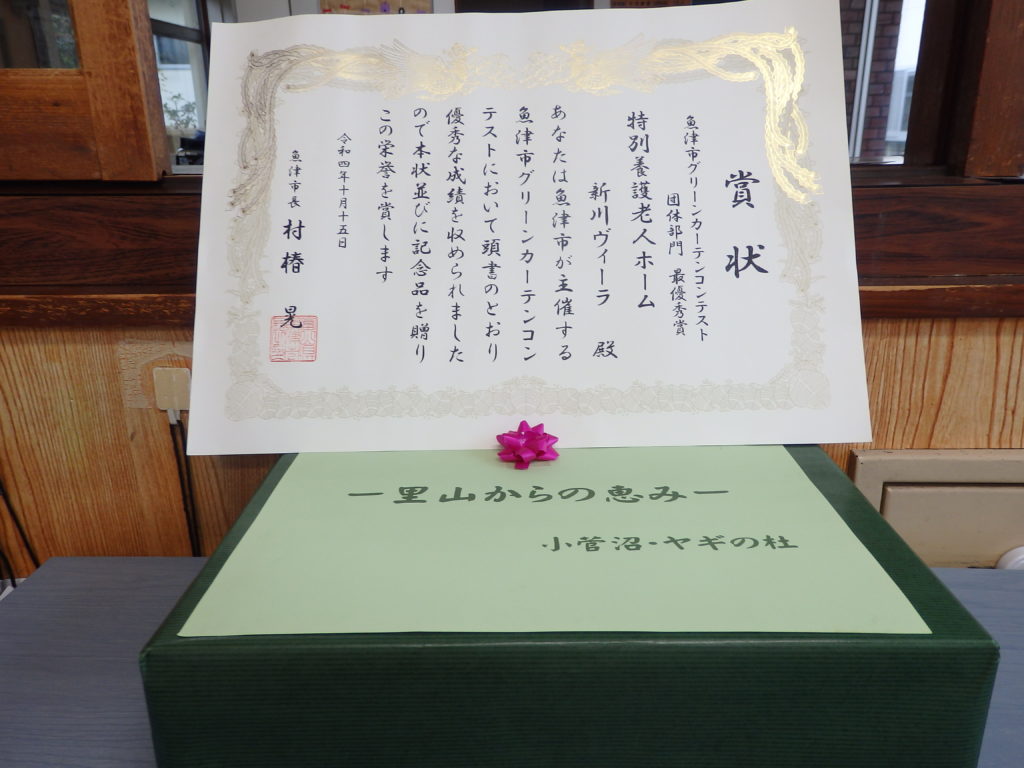 賞状
魚津市グリーンカーテンコンテスト
団体部門 最優秀賞
特別養護老人ホーム
新川ヴィーラ 殿
あなたは魚津市が主催する
魚津市グリーンカーテンコン
テストにおいて頭書のとおり
優秀な成績を収められました
ので本状並びに記念品を贈り
この栄誉を賞します
令和四年十月十五日
魚津市長 村椿 晃
ー里山からの恵みー
小菅沼・ヤギの杜